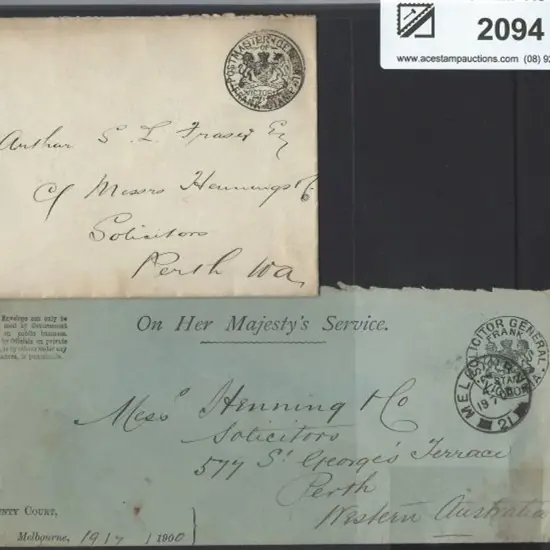 2094
www.acestampauctions.com (08) 92
POSTMASTER-GENERAL
OF
VICTORIA
FRANK STAMP
Arthur S. L. Fraser Esq
c/ Messrs Hennings
Solicitors
Perth Wa
Envelope can only be
used by Government
on public business.
by Officials on private
by others under any
is punishable.
On Her Majesty's Service.
SOLICITOR GENERAL
FRANK
STAMP
VICTORIA
MELBOURNE
19
21
Messrs Henning & Co
Solicitors
577 St George's Terrace
Perth
Western Australia
NTY COURT,
Melbourne, 19/7/1900